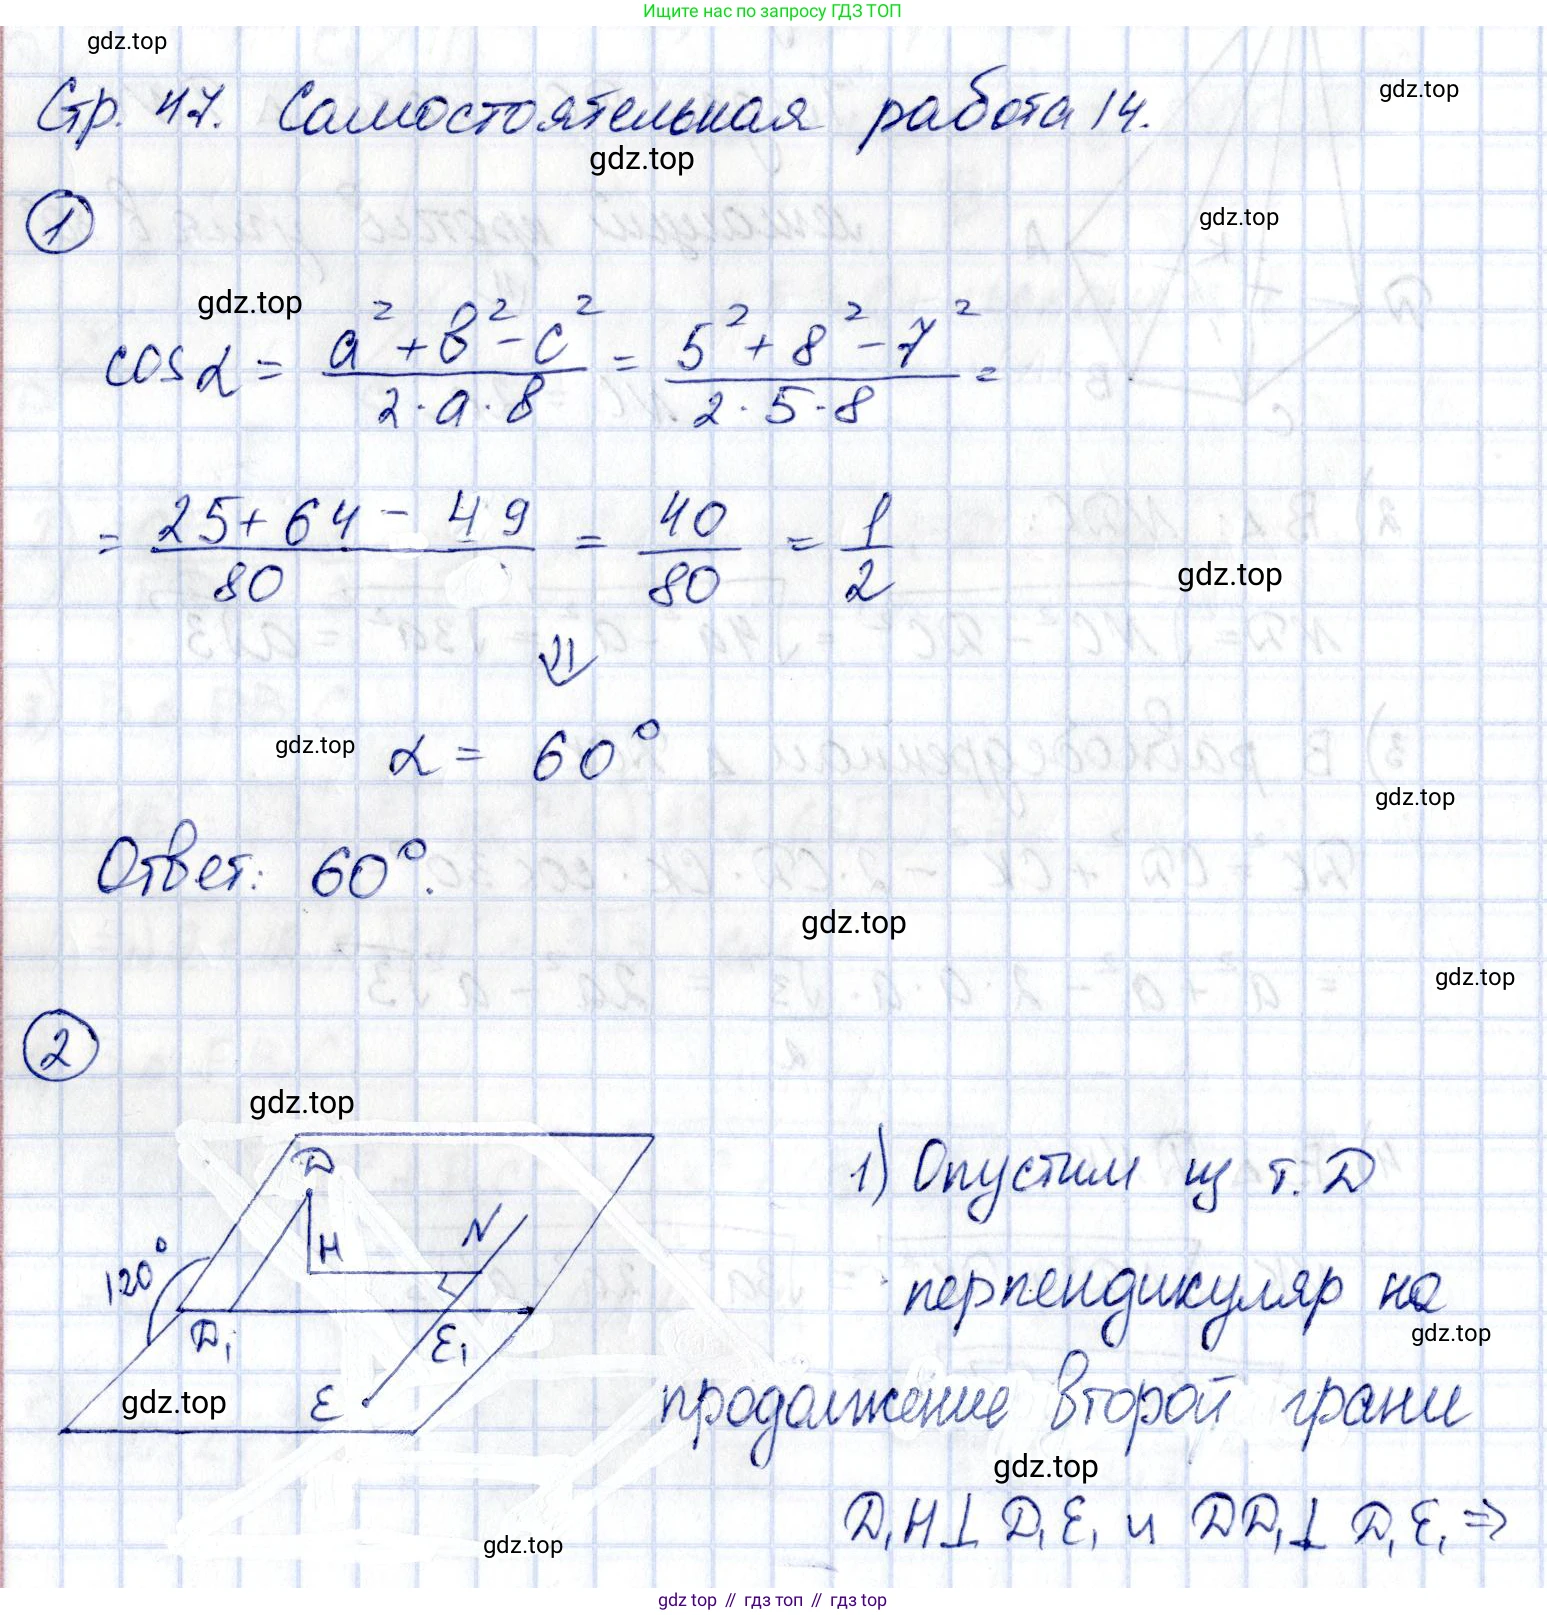 Ищите нас по запросу ГДЗ ТОП
gdz.top
Стр. 47. Самостоятельная работа 14.
gdz.top
gdz.top
1
gdz.top
gdz.top
cos α = (a² + b² - c²) / (2 · a · b) = (5² + 8² - 7²) / (2 · 5 · 8) =
= (25 + 64 - 49) / 80 = 40 / 80 = 1 / 2
gdz.top
⇓
α = 60°
gdz.top
gdz.top
Ответ: 60°.
gdz.top
gdz.top
2
gdz.top
D
H
N
120°
D₁
E₁
E
gdz.top
1) Опустим из т. D
перпендикуляр на
gdz.top
продолжение второй грани
gdz.top
D₁H ⊥ D₁E₁ и DD₁ ⊥ D₁E₁ ⇒
gdz.top
gdz top // гдз топ // гдз top